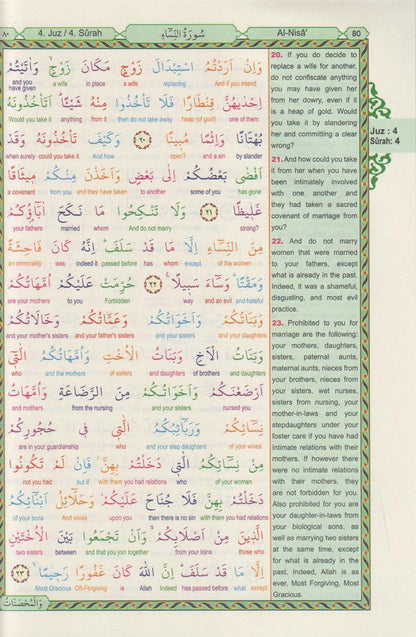 ٨٠
4. Juz / 4. Sûrah
سُورَةُ النِّسَاءِ
Al-Nisâ'
80
وَاِنْ اَرَدْتُمُ اسْتِبْدَالَ زَوْجٍ مَكَانَ زَوْجٍ وَاٰتَيْتُمْ
and you have given a wife in place a wife replacing And if you intend
اِحْدٰيهُنَّ قِنْطَارًا فَلَا تَأْخُذُوا مِنْهُ شَيْئًا اَتَأْخُذُونَهُ
Would you take it anything from it then do not take away heap (of gold) one of them
بُهْتَانًا وَاِثْمًا مُبِينًا ﴿٢٠﴾ وَكَيْفَ تَأْخُذُونَهُ وَقَدْ
when surely could you take it And how open? and a sin by slander
اَفْضٰى بَعْضُكُمْ اِلٰى بَعْضٍ وَاَخَذْنَ مِنْكُمْ مِيثَاقًا
a covenant from you and they have taken to another some of you has gone
غَلِيظًا ﴿٢١﴾ وَلَا تَنْكِحُوا مَا نَكَحَ اٰبَاؤُكُمْ
your fathers married whom And do not marry strong?
مِنَ النِّسَاءِ اِلَّا مَا قَدْ سَلَفَ اِنَّهُ كَانَ فَاحِشَةً
an immorality was indeed it passed before has what except of the women
وَمَقْتًا وَسَاءَ سَبِيلًا ﴿٢٢﴾ حُرِّمَتْ عَلَيْكُمْ اُمَّهَاتُكُمْ
are your mothers to you Forbidden way and an evil and hateful
وَبَنَاتُكُمْ وَاَخَوَاتُكُمْ وَعَمَّاتُكُمْ وَخَالَاتُكُمْ
and your mother's sisters and your father's sisters and your sisters and your daughters
وَبَنَاتُ الْاَخِ وَبَنَاتُ الْاُخْتِ وَاُمَّهَاتُكُمُ الّٰتِي
who and the mothers of sisters and daughters of brothers and daughters
اَرْضَعْنَكُمْ وَاَخَوَاتُكُمْ مِنَ الرَّضَاعَةِ وَاُمَّهَاتُ
and mothers from the nursing and your sisters nursed you
نِسَائِكُمْ وَرَبَائِبُكُمُ الّٰتِي فِي حُجُورِكُمْ
are in your guardianship who and your step daughters of your wives
مِنْ نِسَائِكُمُ الّٰتِي دَخَلْتُمْ بِهِنَّ فَاِنْ لَمْ تَكُونُوا
not you had but if with them you had relations who of your women
دَخَلْتُمْ بِهِنَّ فَلَا جُنَاحَ عَلَيْكُمْ وَحَلَائِلُ اَبْنَائِكُمُ
of your sons And wives upon you then there is no sin with them you had relations
الَّذِينَ مِنْ اَصْلَابِكُمْ وَاَنْ تَجْمَعُوا بَيْنَ الْاُخْتَيْنِ
two sisters between and that you join together from your loins those who
اِلَّا مَا قَدْ سَلَفَ اِنَّ اللّٰهَ كَانَ غَفُورًا رَحِيمًا ﴿٢٣﴾
Most Gracious Oft-Forgiving is Allah Indeed has passed before what except
وَالْمُحْصَنَاتُ
20. If you do decide to
replace a wife for another,
do not confiscate anything
you may have given her
from her dowry, even if it
is a heap of gold. Would
you take it by slandering
her and committing a clear
wrong?
21. And how could you take
it from her when you have
been intimately involved
with one another and
they had taken a sacred
covenant of marriage from
you?
22. And do not marry
women that were married
to your fathers, except
what is already in the past.
Indeed, it was a shameful,
disgusting, and most evil
practice.
23. Prohibited to you for
marriage are the following:
your mothers, daughters,
sisters, paternal aunts,
maternal aunts, nieces from
your brothers, nieces from
your sisters, wet nurses,
sisters from nursing, your
mother-in-laws and your
stepdaughters under your
foster care if you have had
intimate relations with their
mothers. If however there
were no intimate relations
with their mothers, they
are not forbidden for you.
Also prohibited for you are
your daughter-in-laws from
your biological sons, as
well as marrying two sisters
at the same time, except
for what is already in the
past. Indeed, Allah is as
ever, Most Forgiving, Most
Gracious.
Juz : 4
Sûrah: 4